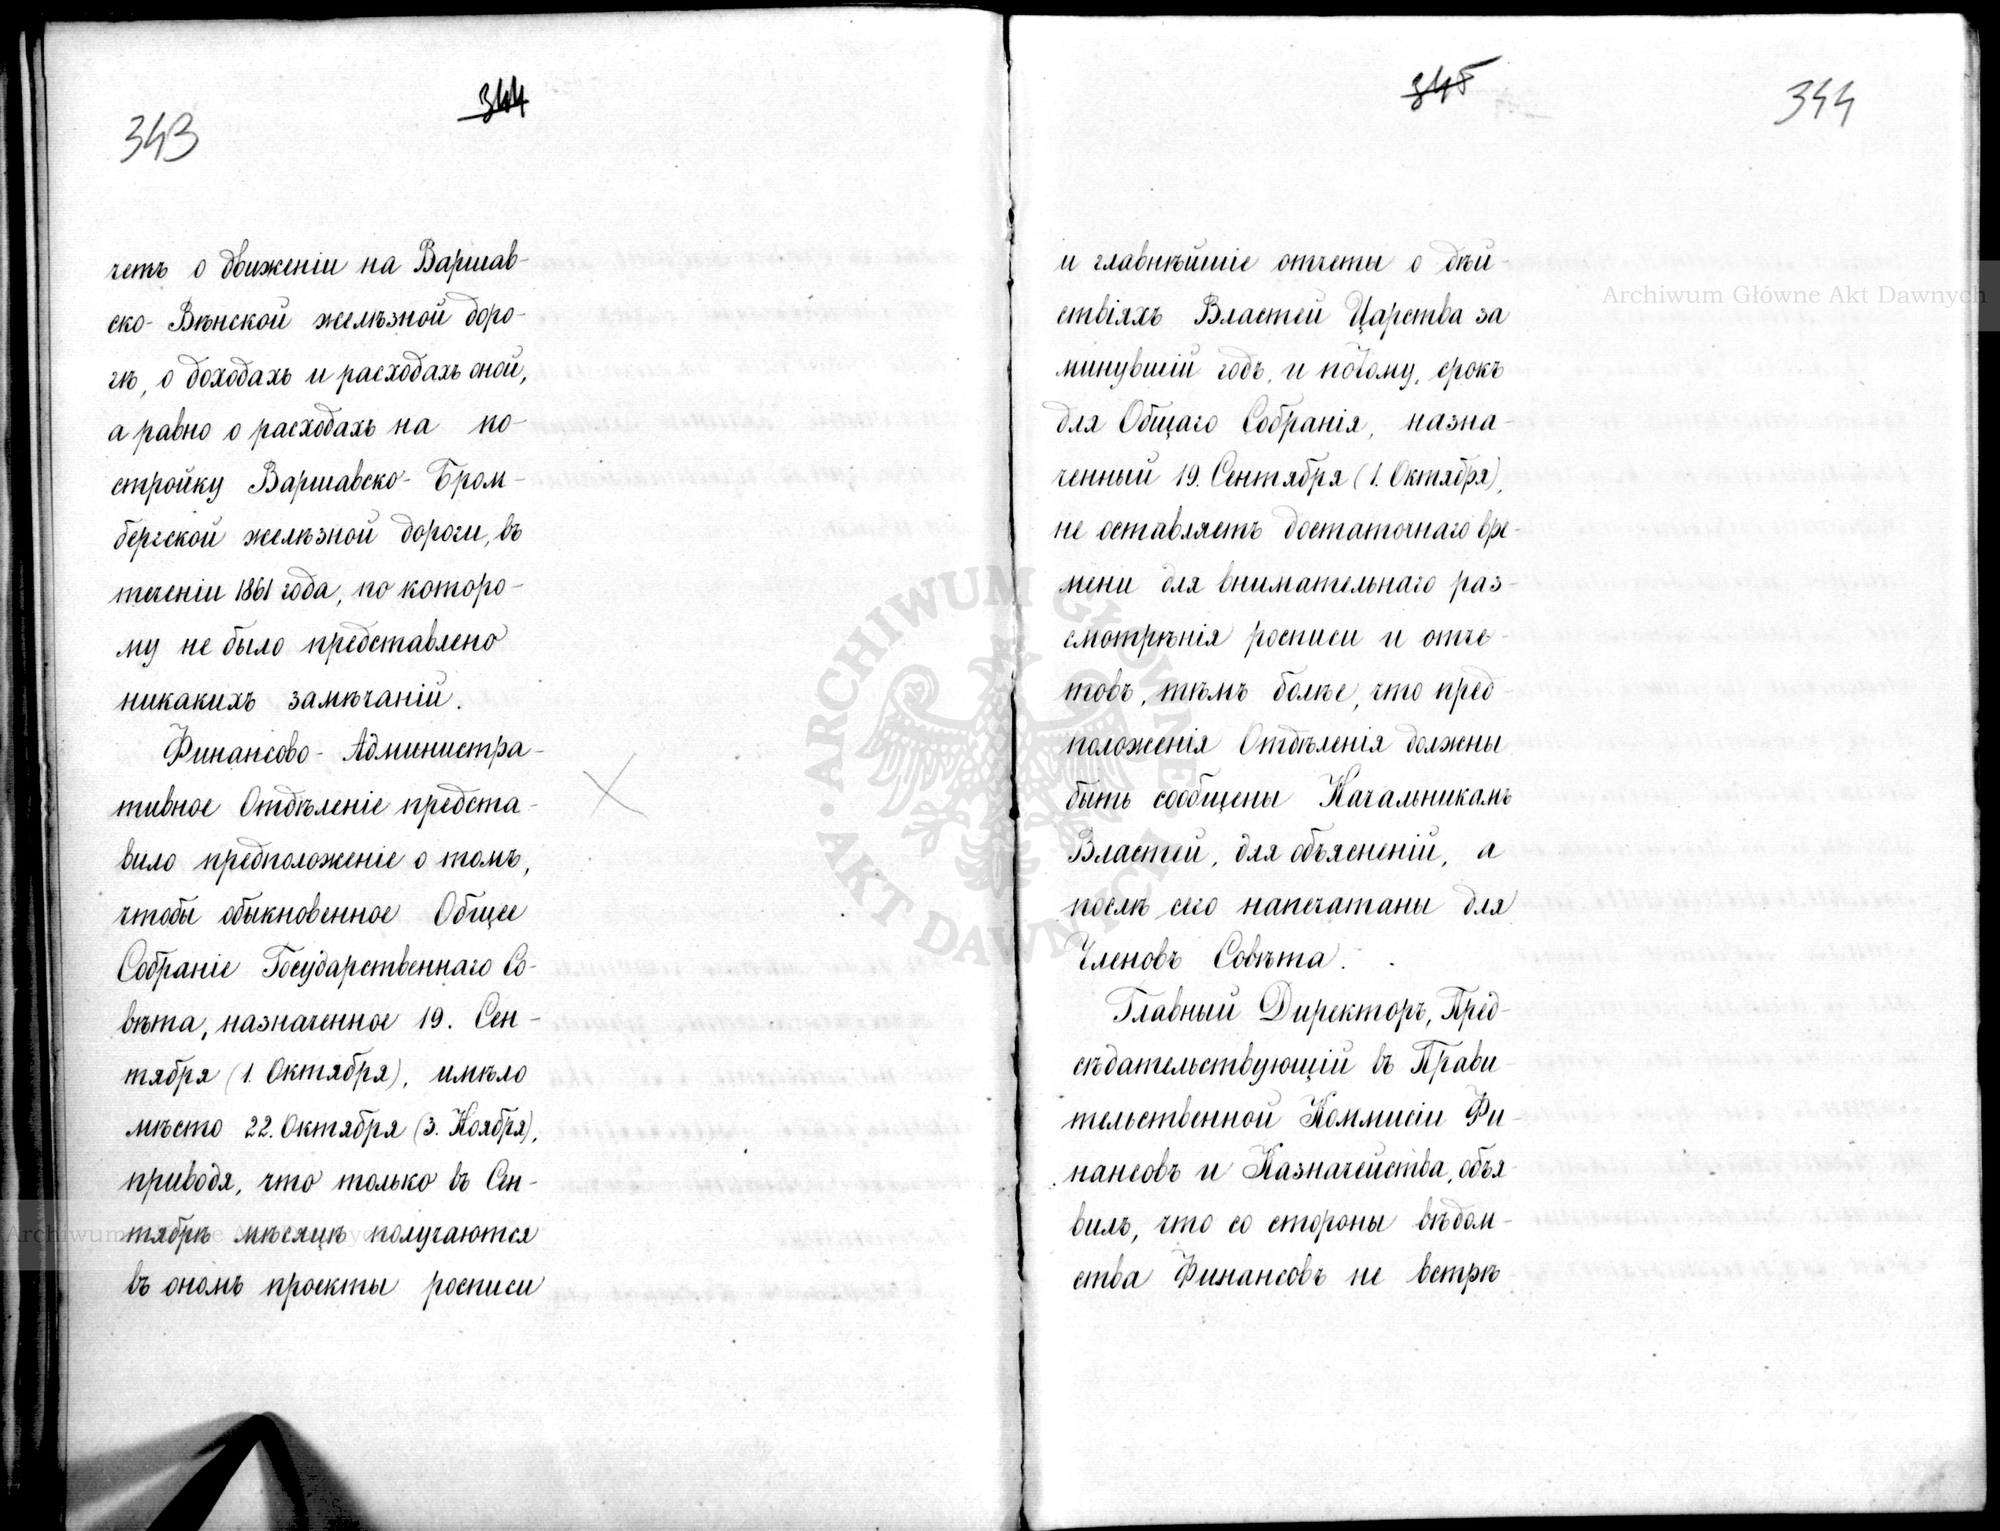 343
344
четъ о движеніи на Варшав-
ско-Вѣнской желѣзной доро-
гѣ, о доходахъ и расходахъ оной,
а равно о расходахъ на по-
стройку Варшавско-Бром-
бергской желѣзной дороги, въ
теченіи 1861 года, по которо-
му не было представлено
никакихъ замѣчаній.
Финансово-Администра-
тивное Отдѣленіе предста-
вило предположеніе о томъ,
чтобы обыкновенное Общее
Собраніе Государственнаго Со-
вѣта, назначенное 19. Сен-
тября (1. Октября), имѣло
мѣсто 22. Октября (3. Ноября),
приводя, что только въ Сен-
тябрѣ мѣсяцѣ получаются
въ ономъ проекты росписи
345
344
и главнѣйшіе отчеты о дѣй-
ствіяхъ Властей Царства за
минувшій годъ, и потому, срокъ
для Общаго Собранія, назна-
ченный 19. Сентября (1. Октября),
не оставляетъ достаточнаго вре-
мени для внимательнаго раз-
смотрѣнія росписи и отче-
товъ, тѣмъ болѣе, что пред-
положенія Отдѣленія должны
быть сообщены Начальникамъ
Властей, для объясненій, а
послѣ сего напечатаны для
Членовъ Совѣта.
Главный Директоръ, Пред-
сѣдательствующій въ Прави-
тельственной Коммисіи Фи-
нансовъ и Казначейства, объя-
вилъ, что со стороны вѣдом-
ства Финансовъ не встрѣ-
Archiwum Główne Akt Dawnych
ARCHIWUM GŁÓWNE AKT DAWNYCH